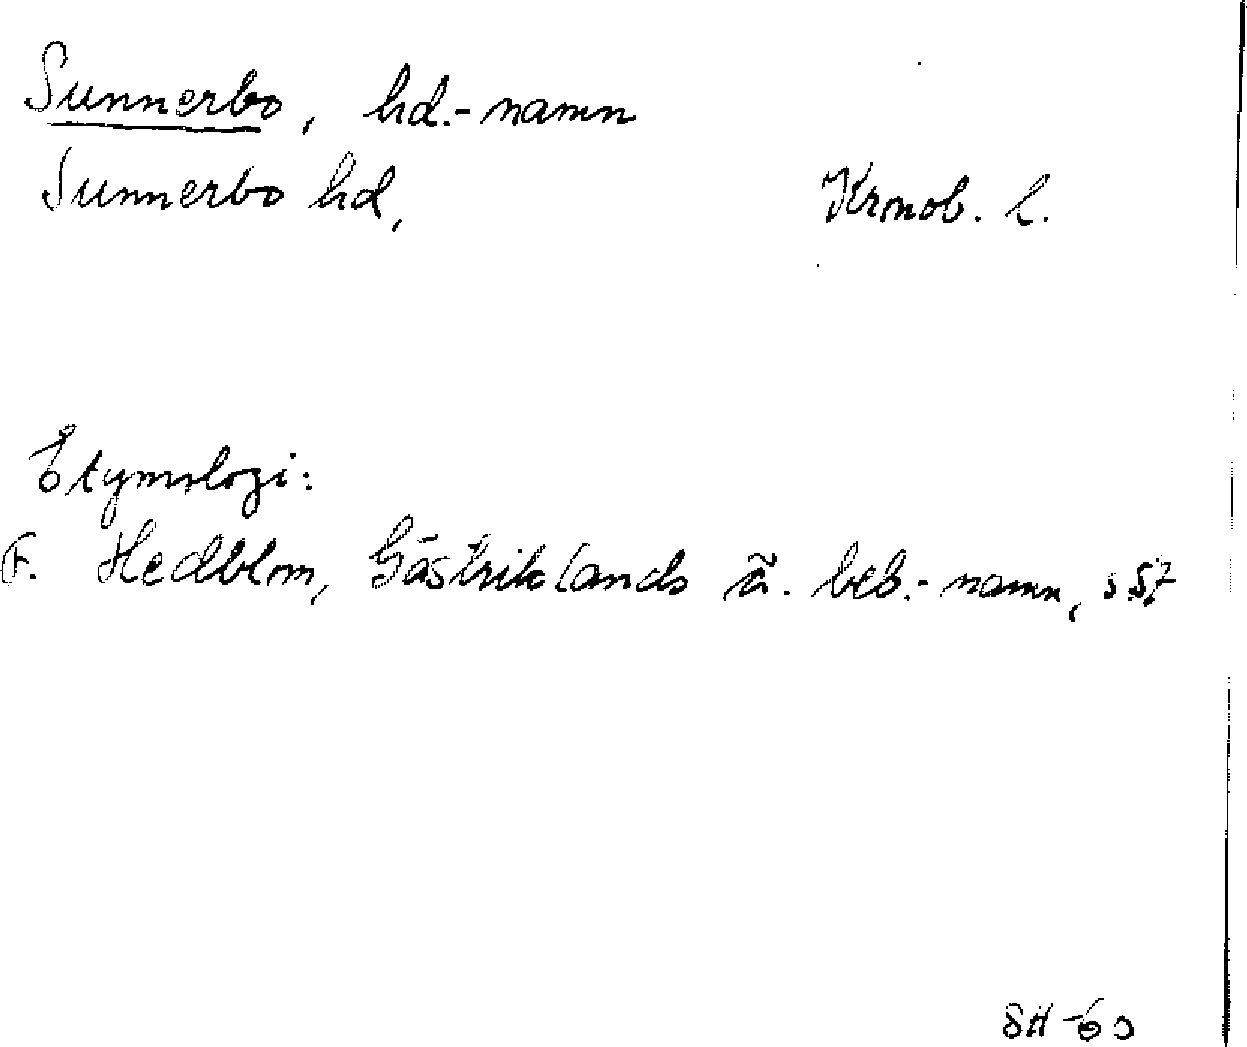 Sunnerbo, hd.-namn
Sunnerbo hd, Kronob. l.
Etymologi:
F. Hedblom, Gästriklands ä. beb.-namn, s 57
SH-60